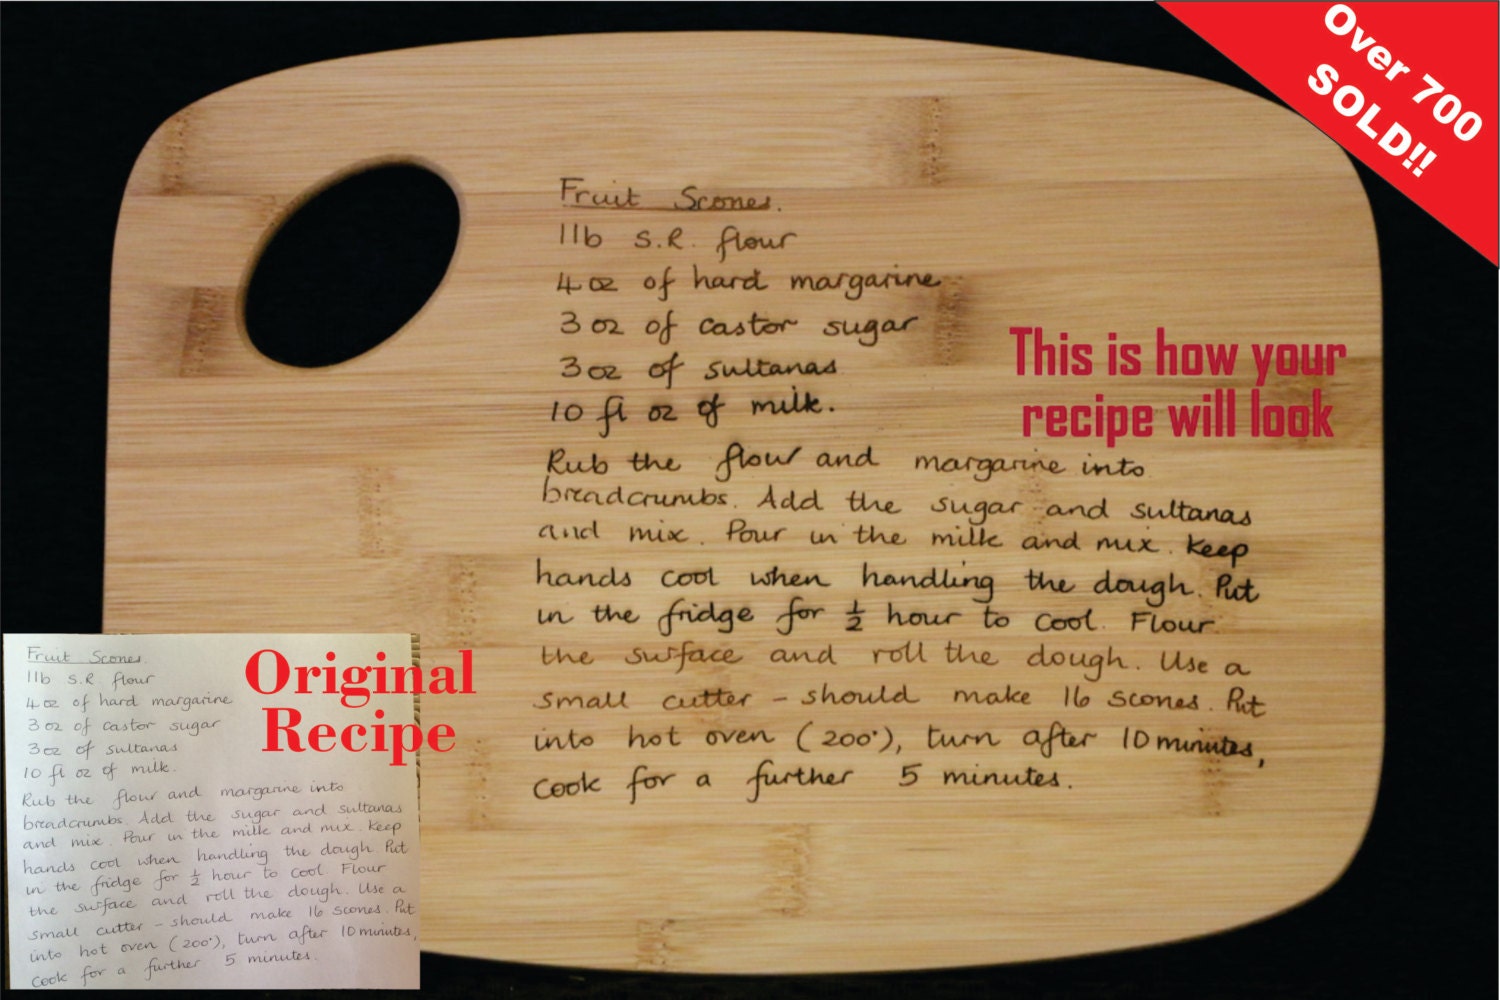 Over 700
SOLD!!
Fruit Scones.
1lb S.R. flour
4 oz of hard margarine
3 oz of castor sugar
3 oz of sultanas
10 fl oz of milk.
Rub the flour and margarine into
breadcrumbs. Add the sugar and sultanas
and mix. Pour in the milk and mix. Keep
hands cool when handling the dough. Put
in the fridge for ½ hour to cool. Flour
the surface and roll the dough. Use a
small cutter - should make 16 scones. Put
into hot oven (200°), turn after 10 minutes,
cook for a further 5 minutes.
This is how your
recipe will look
Original
Recipe
Fruit Scones.
1lb S.R. flour
4 oz of hard margarine
3 oz of castor sugar
3 oz of sultanas
10 fl oz of milk.
Rub the flour and margarine into
breadcrumbs. Add the sugar and sultanas
and mix. Pour in the milk and mix. Keep
hands cool when handling the dough. Put
in the fridge for ½ hour to cool. Flour
the surface and roll the dough. Use a
small cutter - should make 16 scones. Put
into hot oven (200°), turn after 10 minutes,
cook for a further 5 minutes.